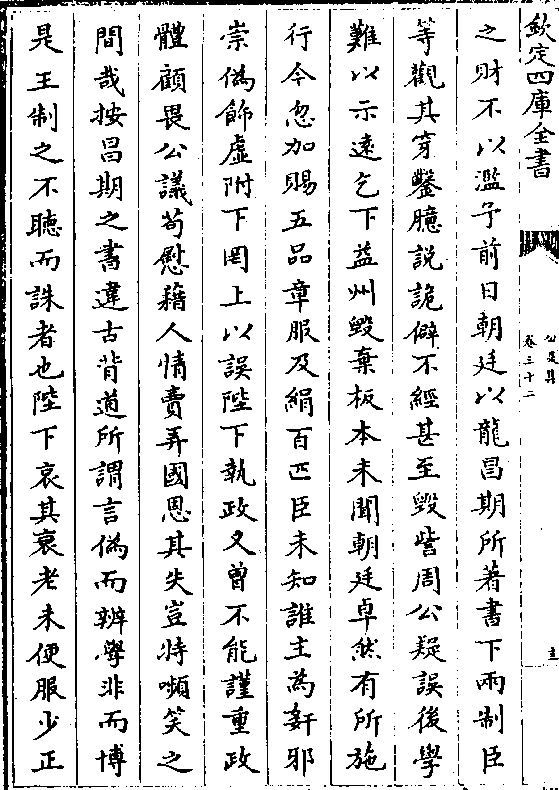 欽定四庫全書
公是集
卷三十二
之財不以濫予前日朝廷以龍昌期所著書下兩制臣
等觀其穿鑿臆說詭僻不經甚至毀訾周公疑誤後學
難以示遠乞下益州毀棄板本未聞朝廷卓然有所施
行今忽加賜五品章服及絹百匹臣未知誰主為姧邪
崇偽飾虛附下罔上以誤陛下執政又曽不能謹重政
體顧畏公議茍慰藉人情賣弄國恩其失豈特嚬笑之
間哉按昌期之書違古背道所謂言偽而辨學非而博
是王制之不聽而誅者也陛下哀其衰老未便服少正